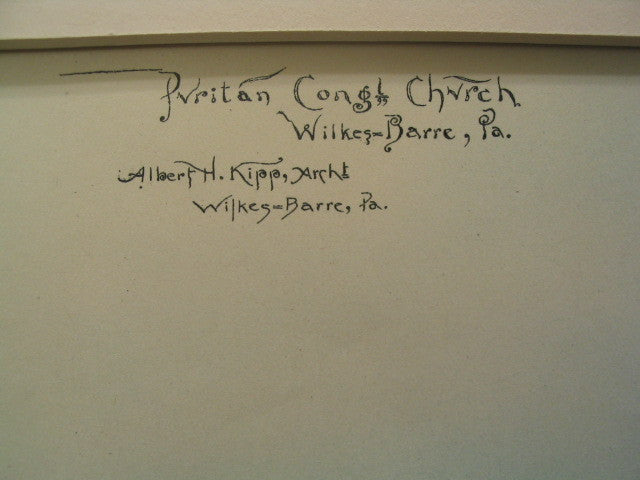 Puritan Cong'l Church
Wilkes=Barre, Pa.
Albert H. Kipp, Archt
Wilkes=Barre, Pa.